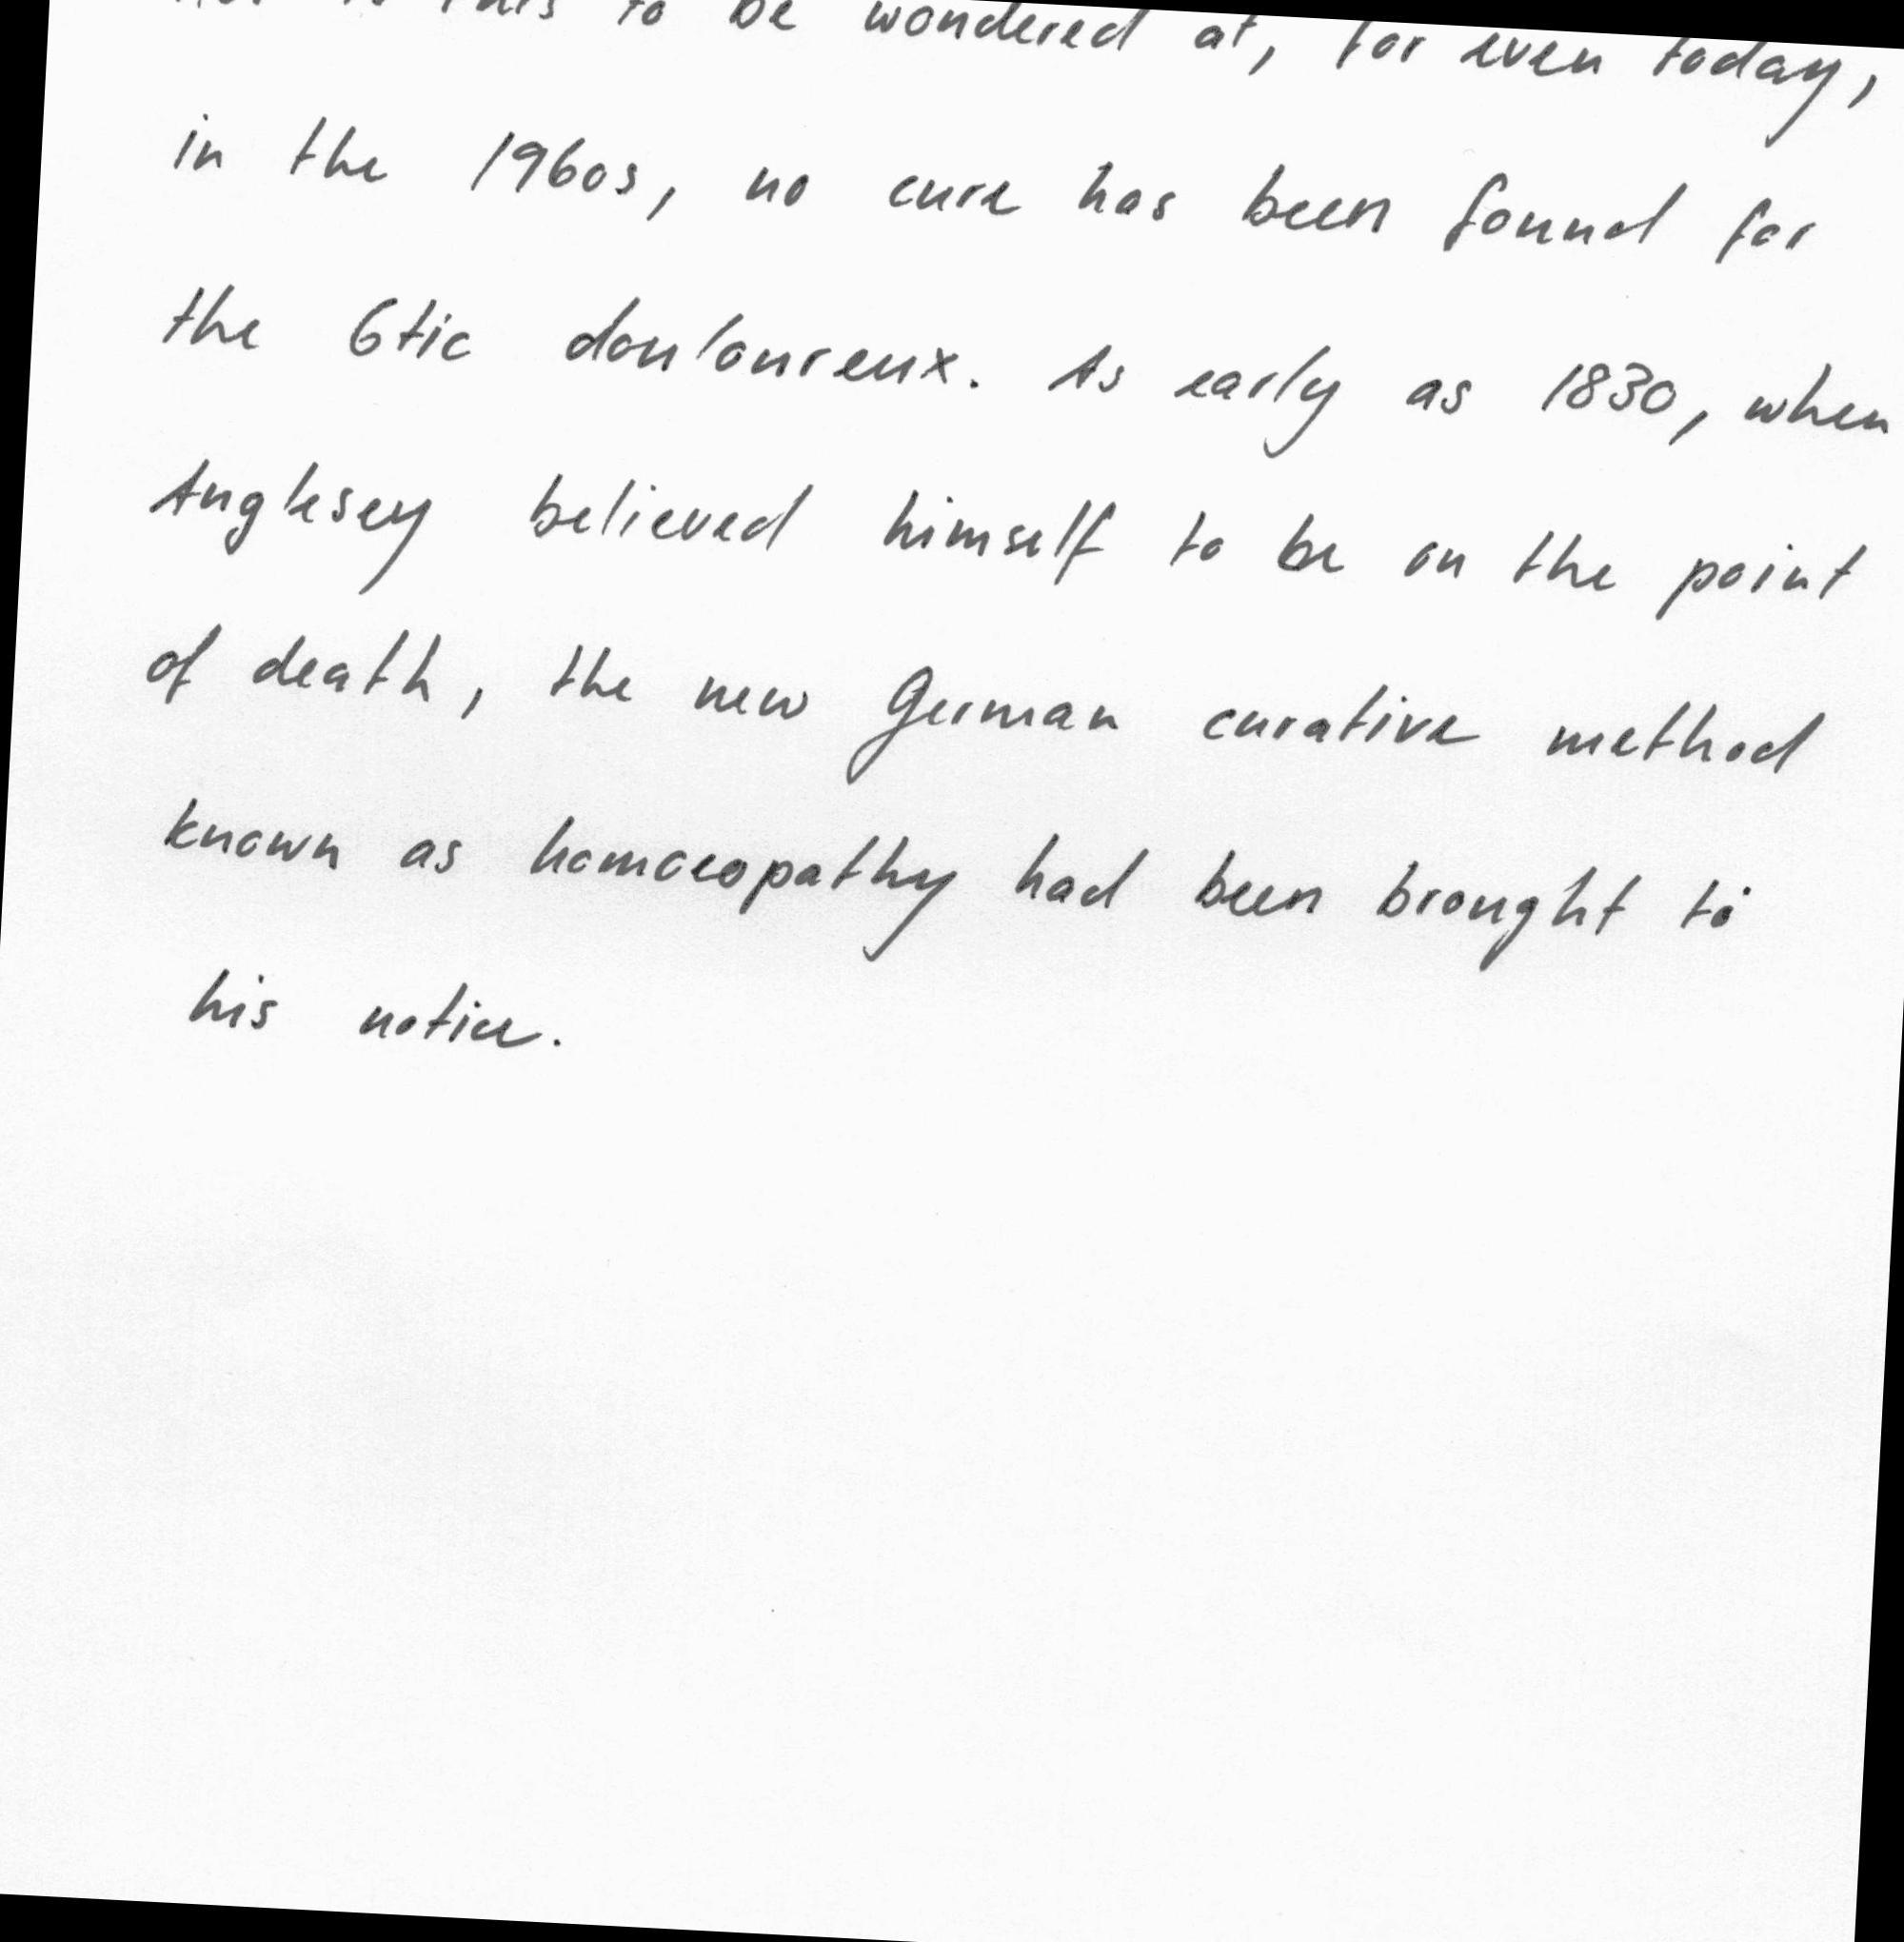 nor is this to be wondered at, for even today,
in the 1960s, no cure has been found for
the 6tic douloureux. As early as 1830, when
Anglesey believed himself to be on the point
of death, the new German curative method
known as homoeopathy had been brought to
his notice.